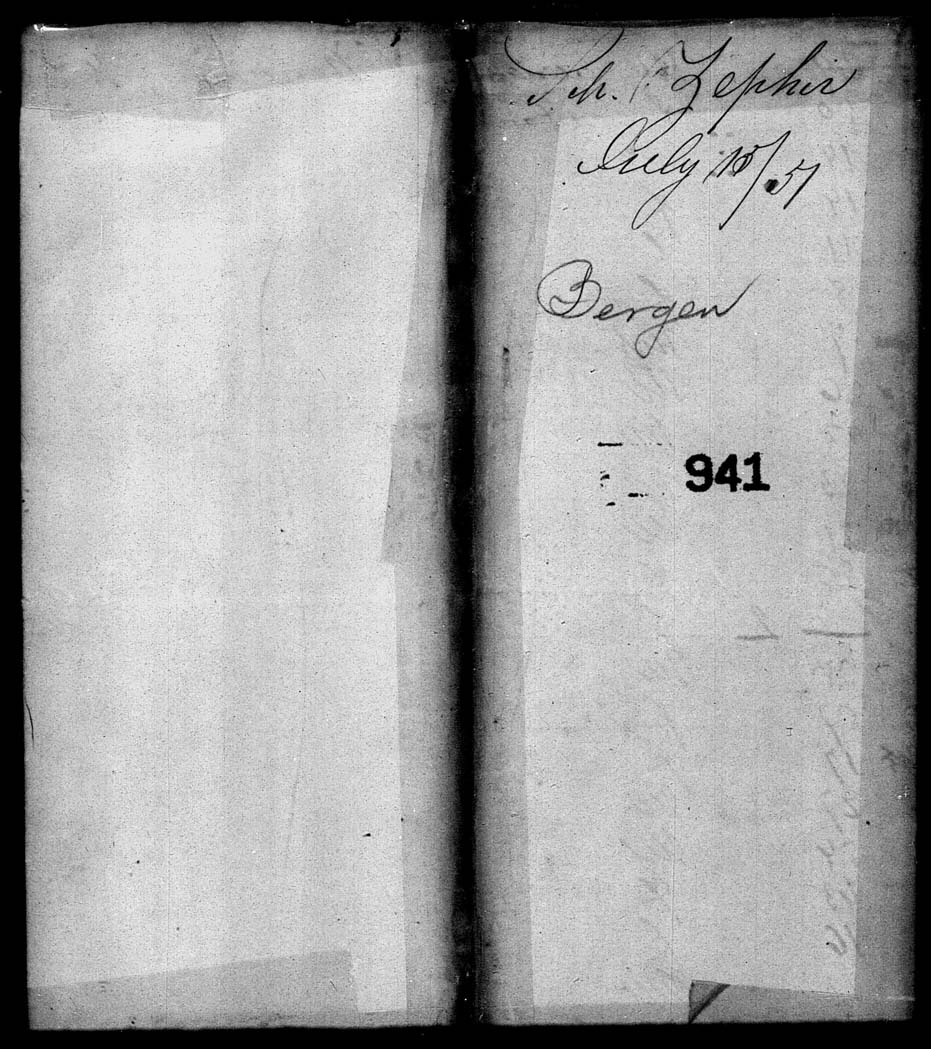 Sch. Zephir
July 15/51
Bergen
941